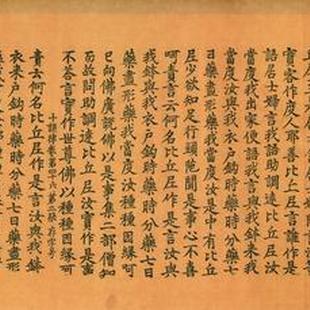 實客作度人耶善比丘尼言誰作是
語居士婦言我語助調達比丘尼汝
當度我出家便語我言與我鉢來我
當度汝與我衣戶鈎時藥時分藥七
日藥盡形藥我當度汝是中有比丘
尼少欲知足行頭陀聞是事心不喜
呵責言云何名比丘尼作是言汝與
我鉢與我衣戶鈎時藥時分藥七日
藥盡形藥我當度汝種種因緣呵
已向佛廣說佛以是事集二部僧知
而故問助調達比丘尼汝實作是事
不答言實作世尊佛以種種因緣呵
十誦律卷第四十六 第 張 字号
責云何名比丘尼作是言汝與我鉢
衣來戶鈎時藥時分藥七日藥盡形